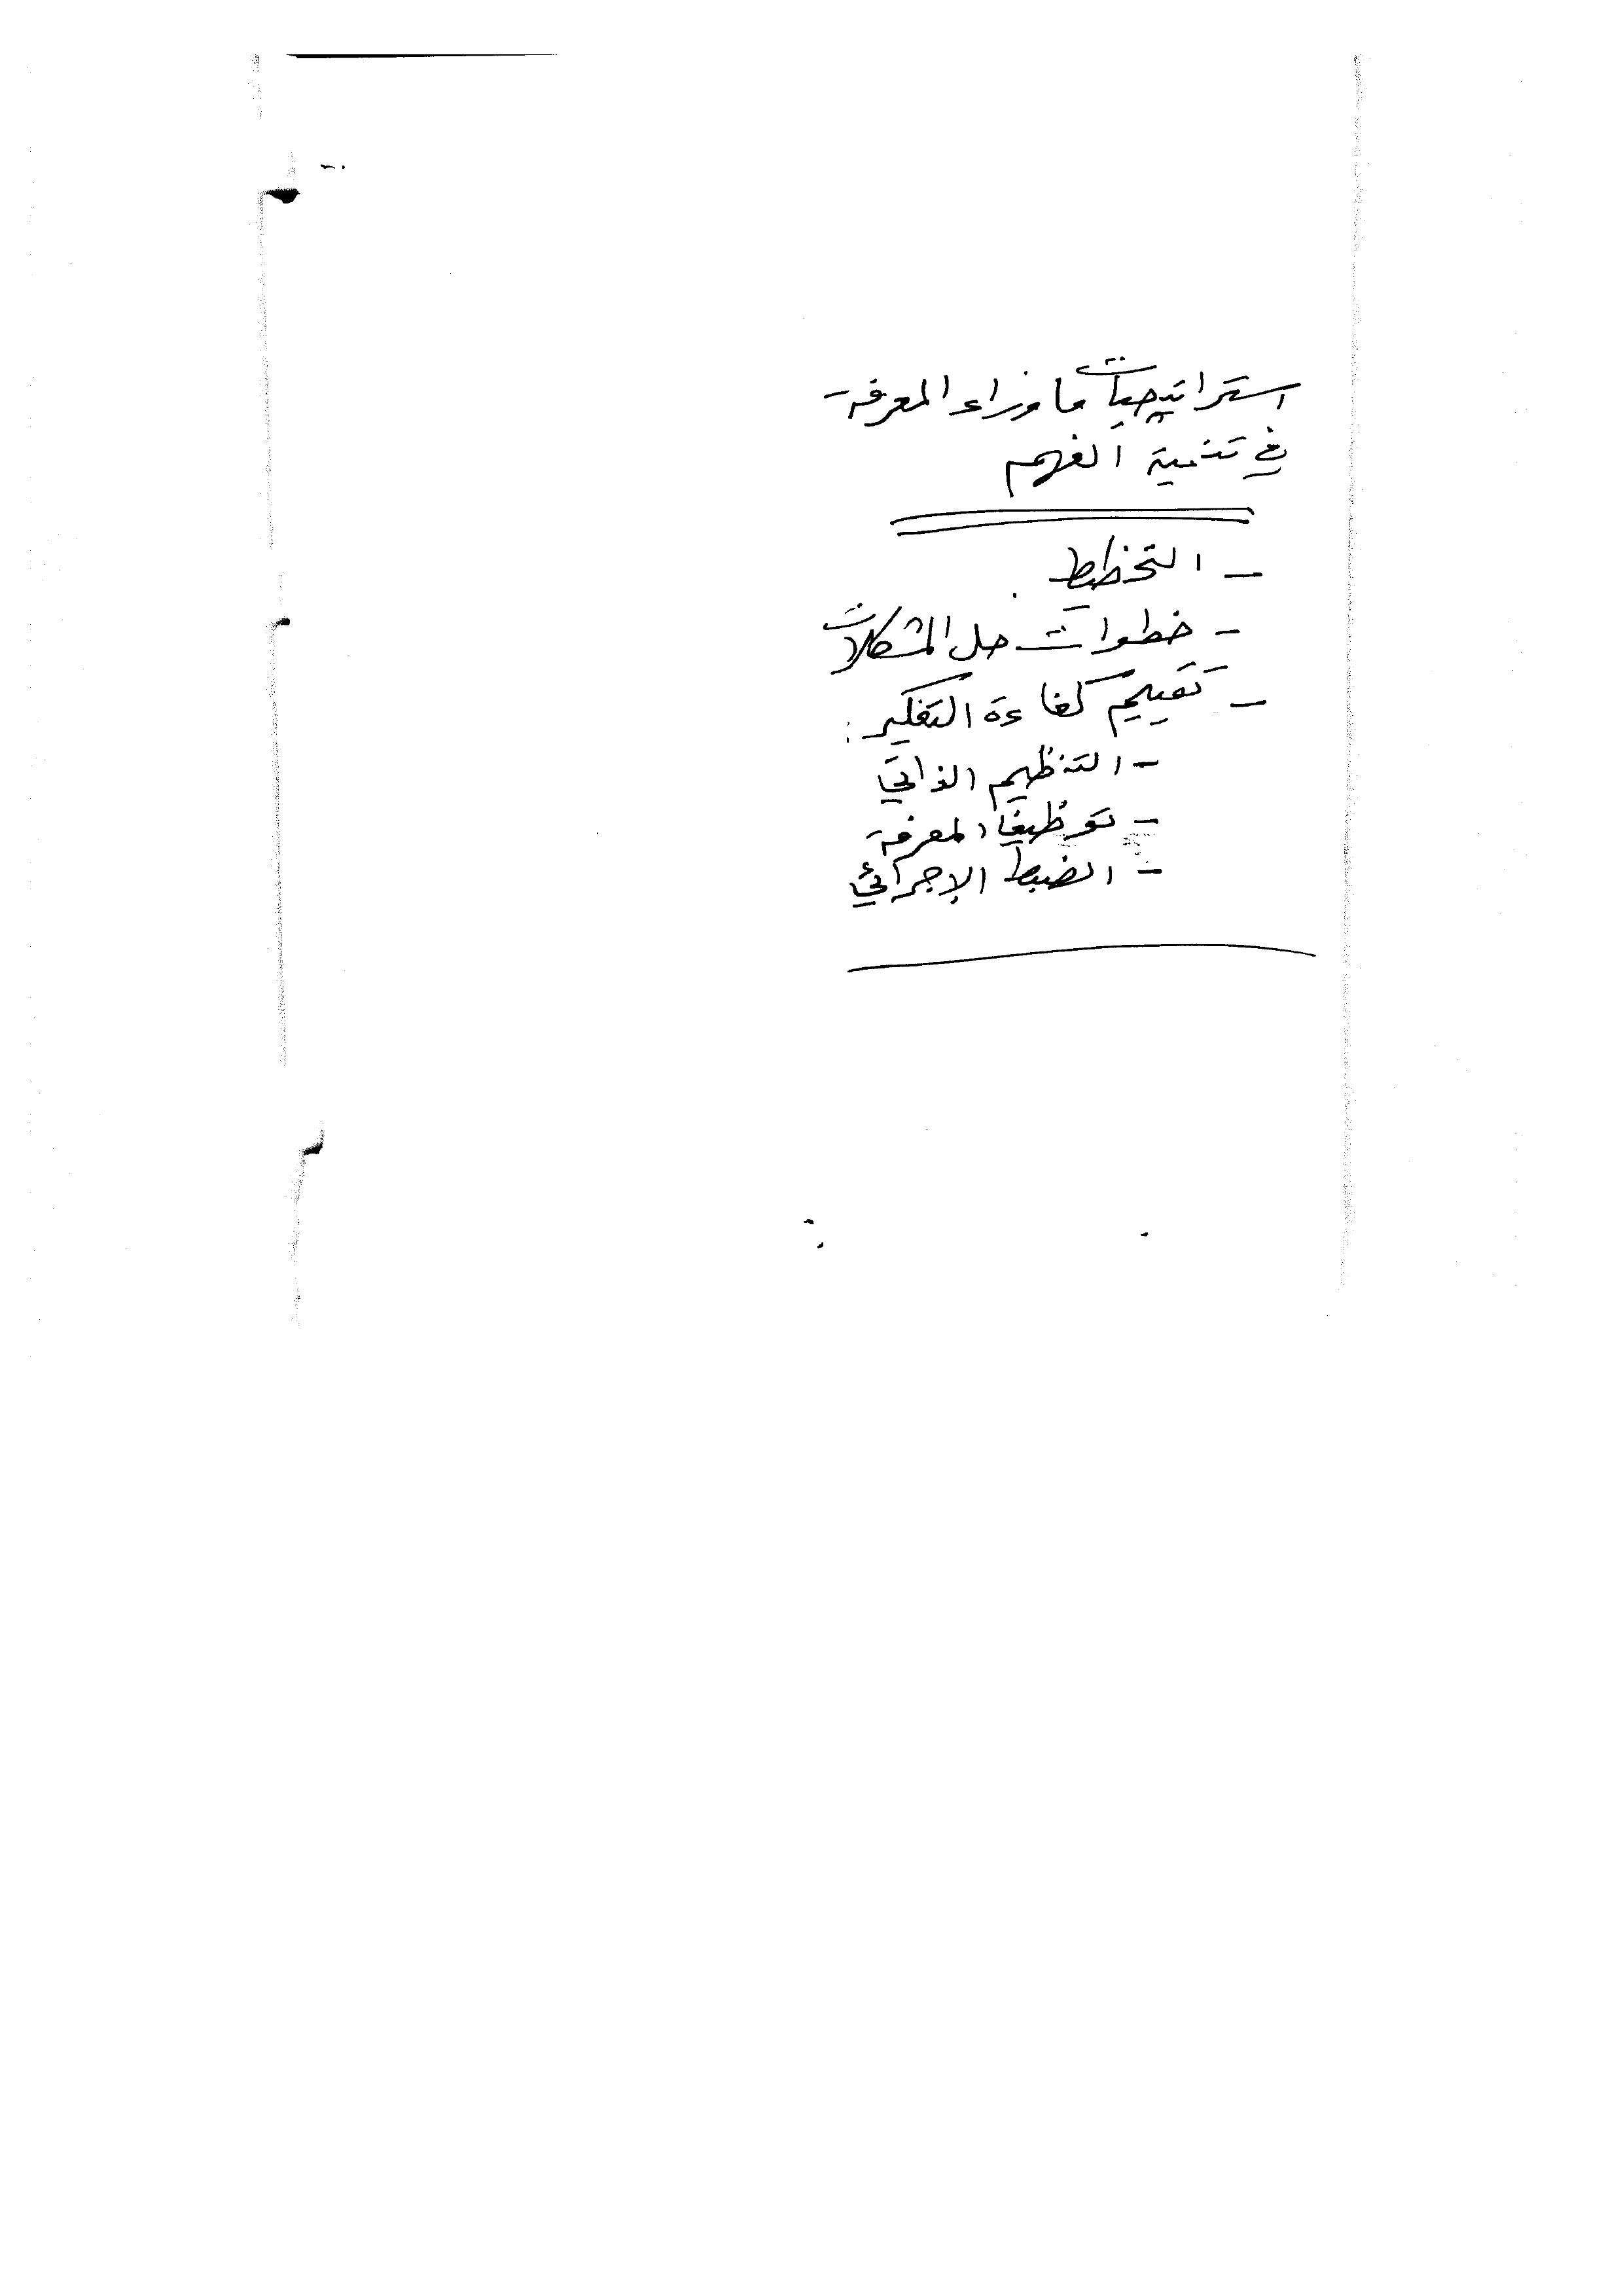 استراتيجيات ما وراء المعرفة
في تنمية الفهم
- التخطيط
- خطوات حل المشكلات
- تقييم كفاءة التفكير :
- التنظيم الذاتي
- توظيف المعرفة
- الضبط الإجرائي